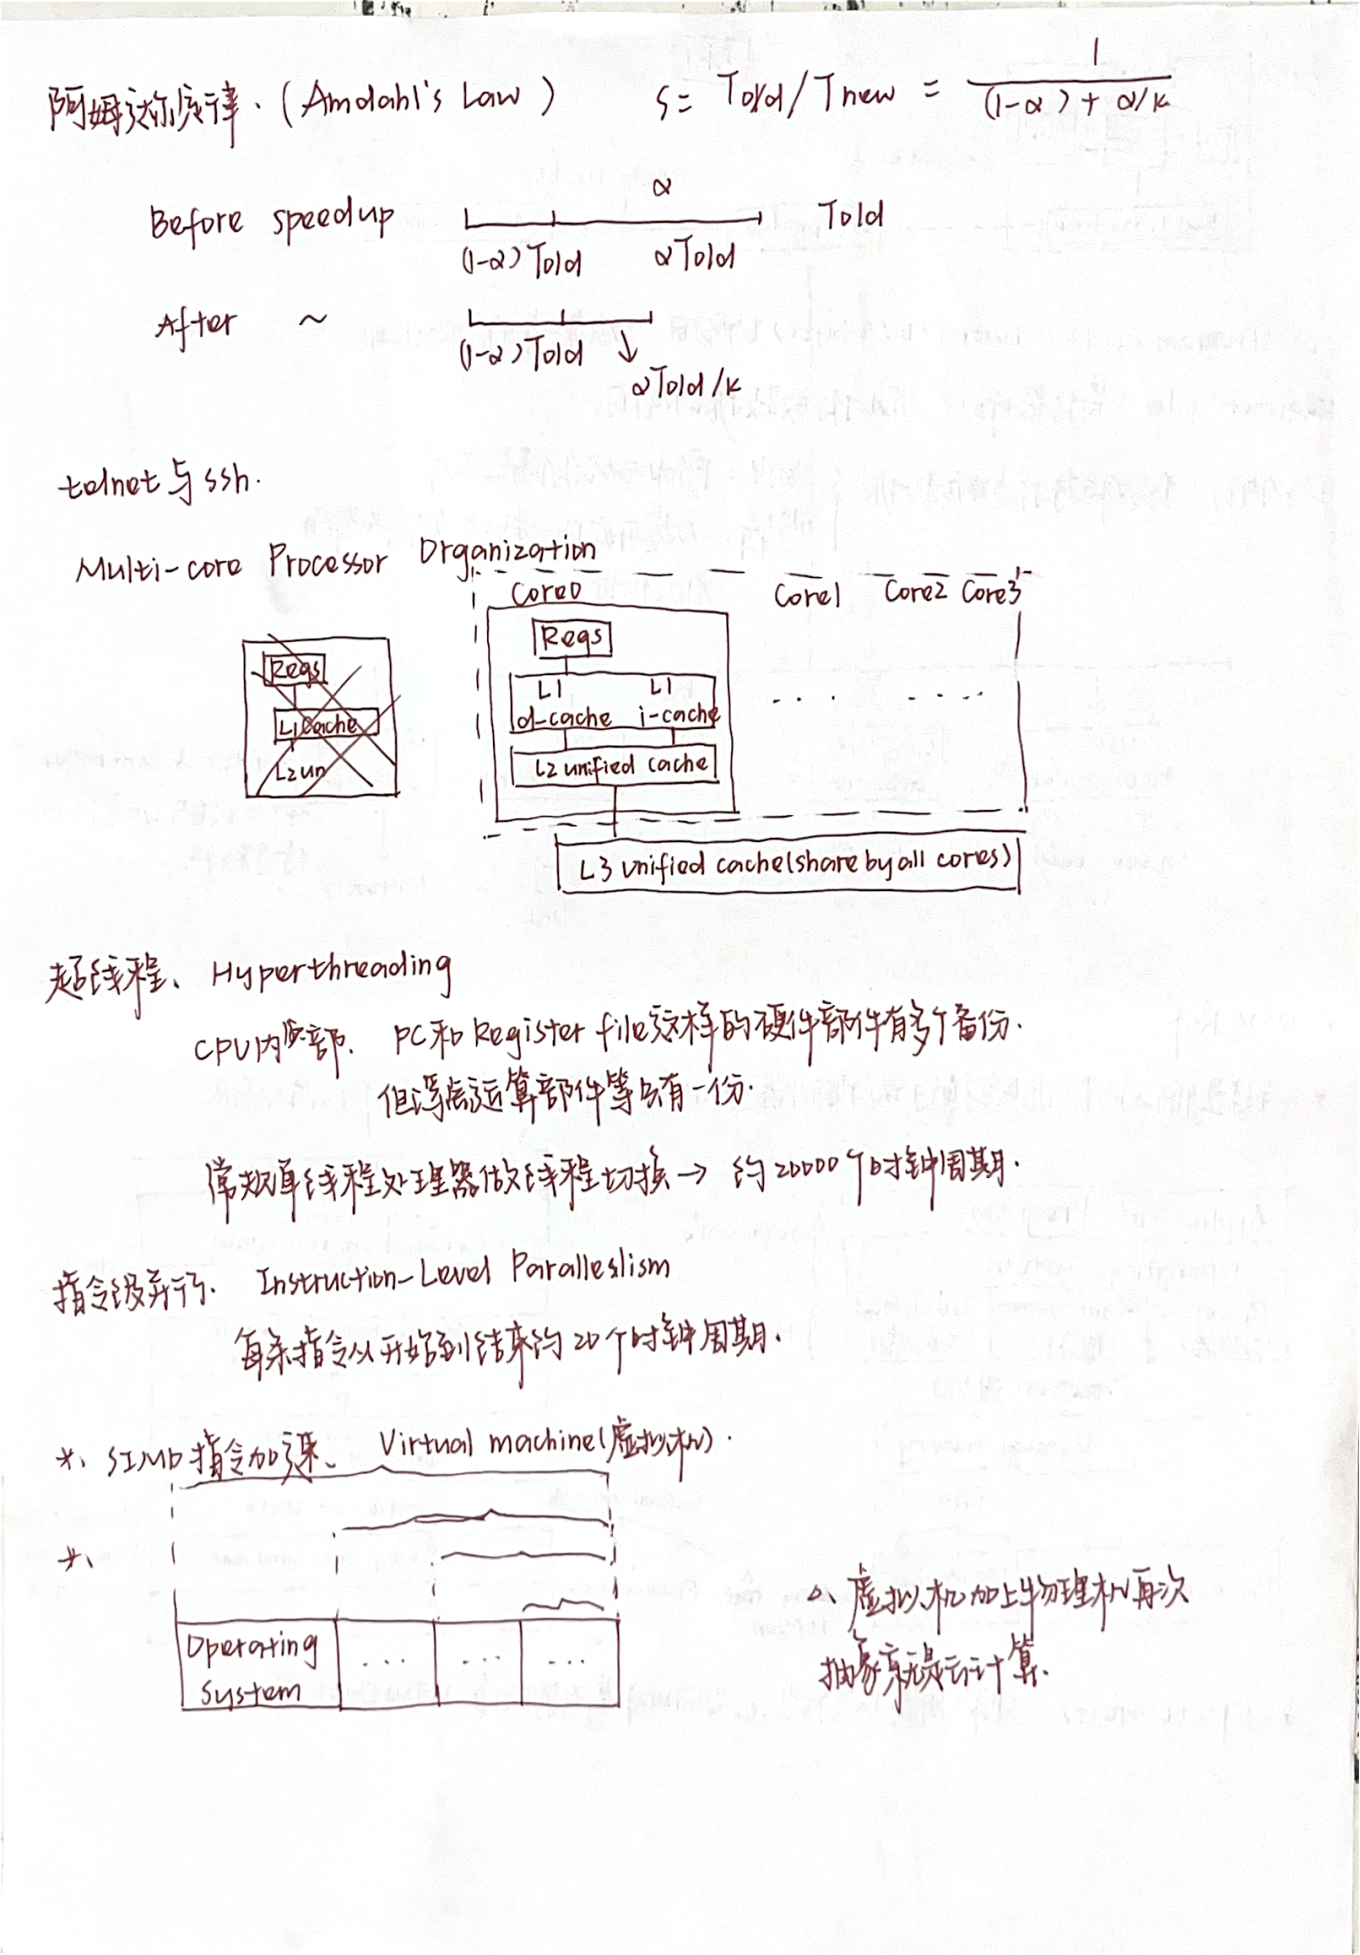 阿姆达尔定律.(Amdahl's Law) S = Told/Tnew = 1/((1-α)+α/k)
α
Before speedup Told
(1-α)Told αTold
After ~
(1-α)Told
αTold/k
telnet与ssh.
Multi-core Processor Organization
Core0 Core1 Core2 Core3
Regs
L1 cache
L2 un
Regs
L1 L1
d-cache i-cache
.... ....
L2 unified cache
L3 unified cache(share by all cores)
超线程、Hyperthreading
CPU内部. PC和Register file这样的硬件部件有多个备份.
但浮点运算部件等只有一份.
常规单线程处理器做线程切换→约20000个时钟周期.
指令级并行. Instruction-Level Paralleslism
每条指令从开始到结束约20个时钟周期.
*、SIMD指令加速、 Virtual machine(虚拟机).
*、
Operating ... ... ...
System
△、虚拟机加上物理机再次
抽象就是云计算.